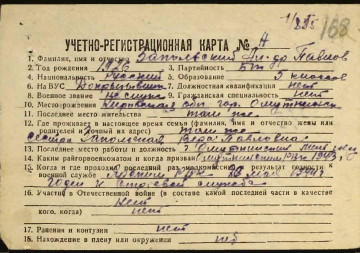 168
УЧЕТНО-РЕГИСТРАЦИОННАЯ КАРТА № А
1. Фамилия, имя и отчество Запольский Ал-др Павлов
2. Год рождения 1926 3. Партийность б/п
4. Национальность русский 5. Образование 3 класса
6. На ВУС 7. Должностная квалификация нет
8. Военное звание 9. Гражданская специальность нет
10. Место-рождения Кировская обл. гор. Омутнинск
11. Последнее место жительства там же
12. Где проживает в настоящее время семья (фамилия, имя и отчество жены или
родителей и точный их адрес) там же
сестра Запольская Вера Павловна
13. Последнее место работы и должность
14. Каким райгорвоенкоматом и когда призван Омутнинским РВК 1943 г.
15. Когда и где проходил последний раз медосмотр, результат годности к
военной службе РВК 1944 г.
Годен к строевой службе
16. Участие в Отечественной войне (в составе какой последней части в качестве
кого, когда) нет
нет
17. Ранения и контузии нет
18. Нахождение в плену или окружении нет